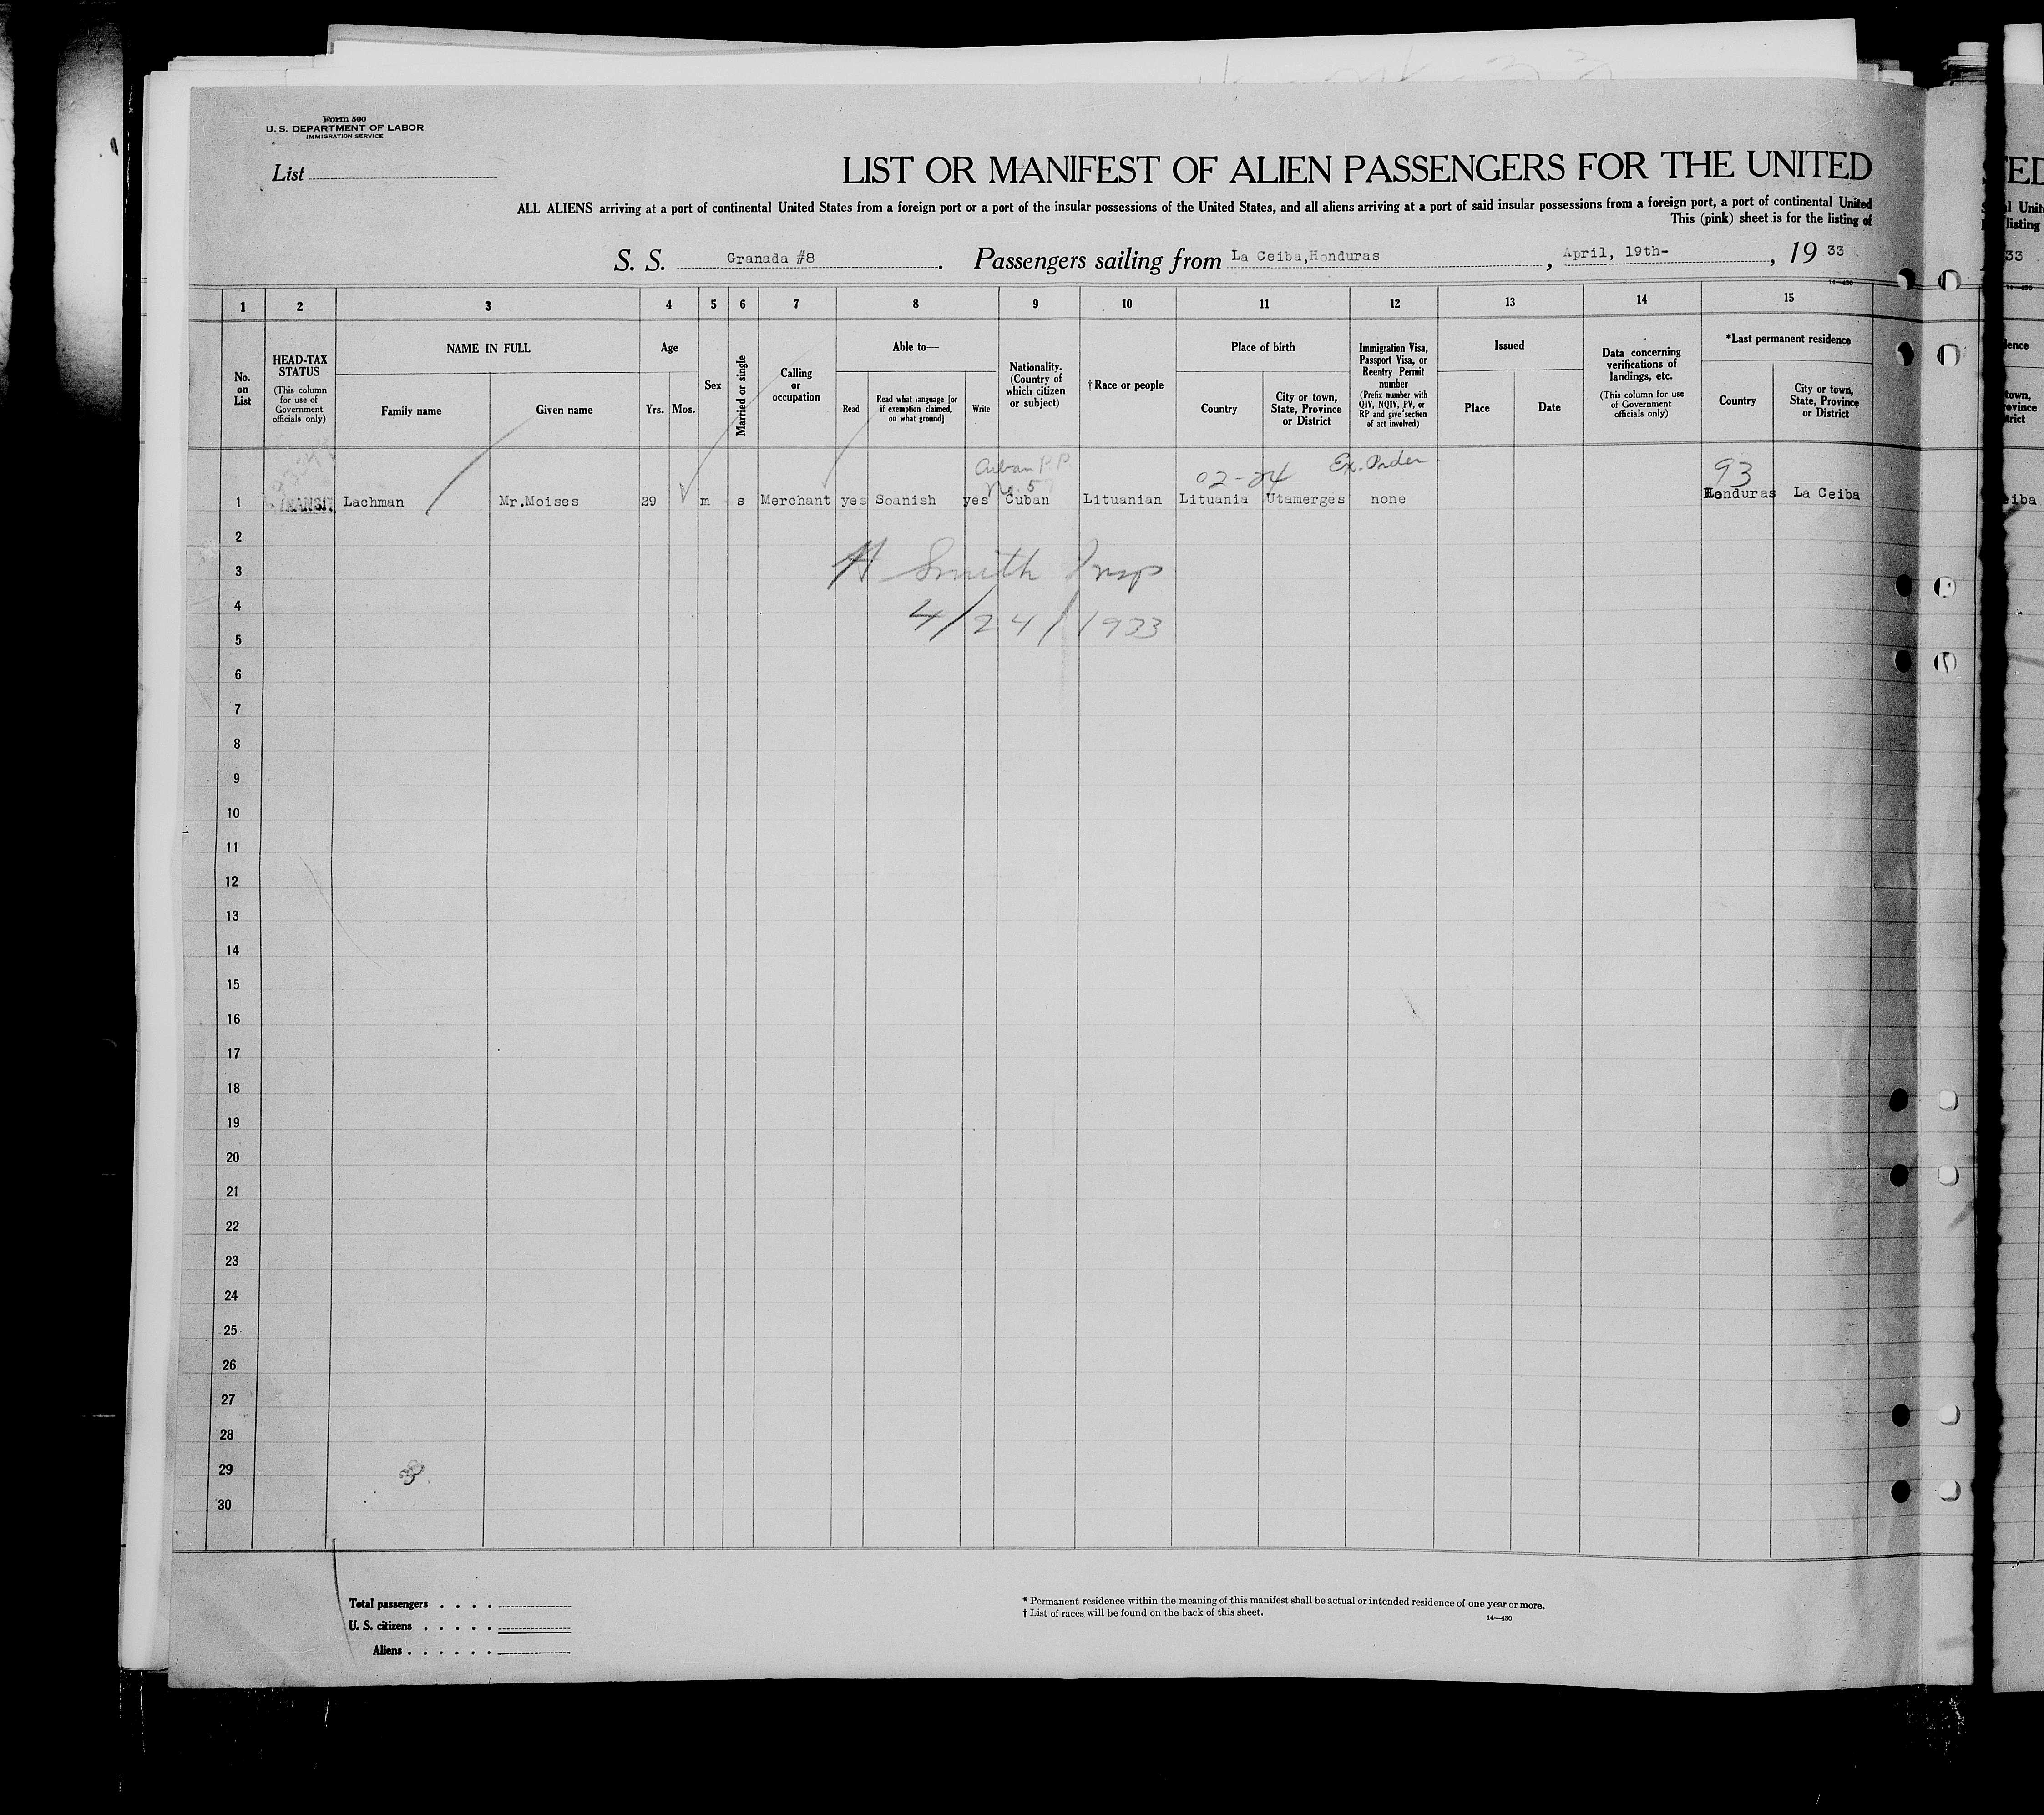 Form 500
U. S. DEPARTMENT OF LABOR
IMMIGRATION SERVICE
List
LIST OR MANIFEST OF ALIEN PASSENGERS FOR THE UNITED
ALL ALIENS arriving at a port of continental United States from a foreign port or a port of the insular possessions of the United States, and all aliens arriving at a port of said insular possessions from a foreign port, a port of continental United
This (pink) sheet is for the listing of
S. S. Granada #8 . Passengers sailing from La Ceiba,Honduras , April, 19th- , 19 33
14—430
1 2 3 4 5 6 7 8 9 10 11 12 13 14 15
No. on List
HEAD-TAX STATUS (This column for use of Government officials only)
NAME IN FULL
Family name Given name
Age
Yrs. Mos.
Sex
Married or single
Calling or occupation
Able to—
Read
Read what language [or if exemption claimed, on what ground]
Write
Nationality. (Country of which citizen or subject)
†Race or people
Place of birth
Country
City or town, State, Province or District
Immigration Visa, Passport Visa, or Reentry Permit number (Prefix number with QIV, NQIV, PV, or RP and give section of act involved)
Issued
Place Date
Data concerning verifications of landings, etc. (This column for use of Government officials only)
*Last permanent residence
Country
City or town, State, Province or District
Cuban P.P. 02-24 Ex. Order. 93
No. 5
1 TRANSIT Lachman Mr.Moises 29 m s Merchant yes Soanish yes Cuban Lituanian Lituania Utamerges none Honduras La Ceiba
2
H Smith Insp
3
4
4/24/1933
5
6
7
8
9
10
11
12
13
14
15
16
17
18
19
20
21
22
23
24
25
26
27
28
29
30
Total passengers . . . .
U. S. citizens . . . . .
Aliens . . . . . .
* Permanent residence within the meaning of this manifest shall be actual or intended residence of one year or more.
† List of races will be found on the back of this sheet.
14—430